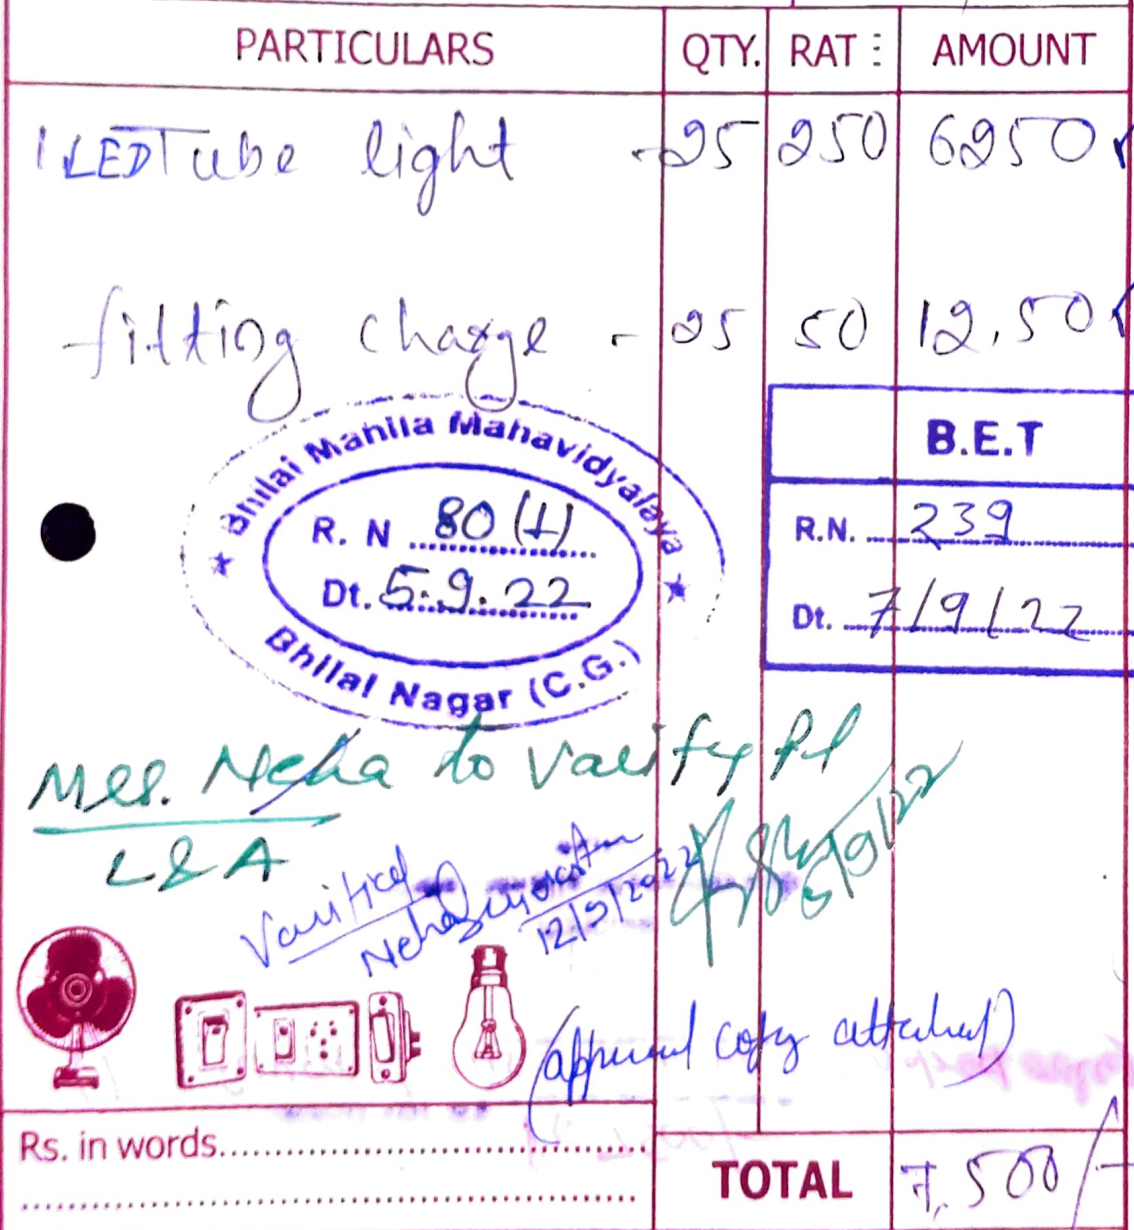 PARTICULARS QTY. RAT⋮ AMOUNT
1 LED Tube light - 25 250 6250
fitting charge - 25 50 12,50
Bhilai Mahila Mahavidyalaya
R. N 80 (1)
Dt. 5.9.22
Bhilai Nagar (C.G.)
B.E.T
R.N. 239
Dt. 7/9/22
Mrs. Neha to Varify Pl
L&A
5/9/22
Varified
Neha
12/9/2022
(approval copy attached)
Rs. in words
TOTAL 7,500/-